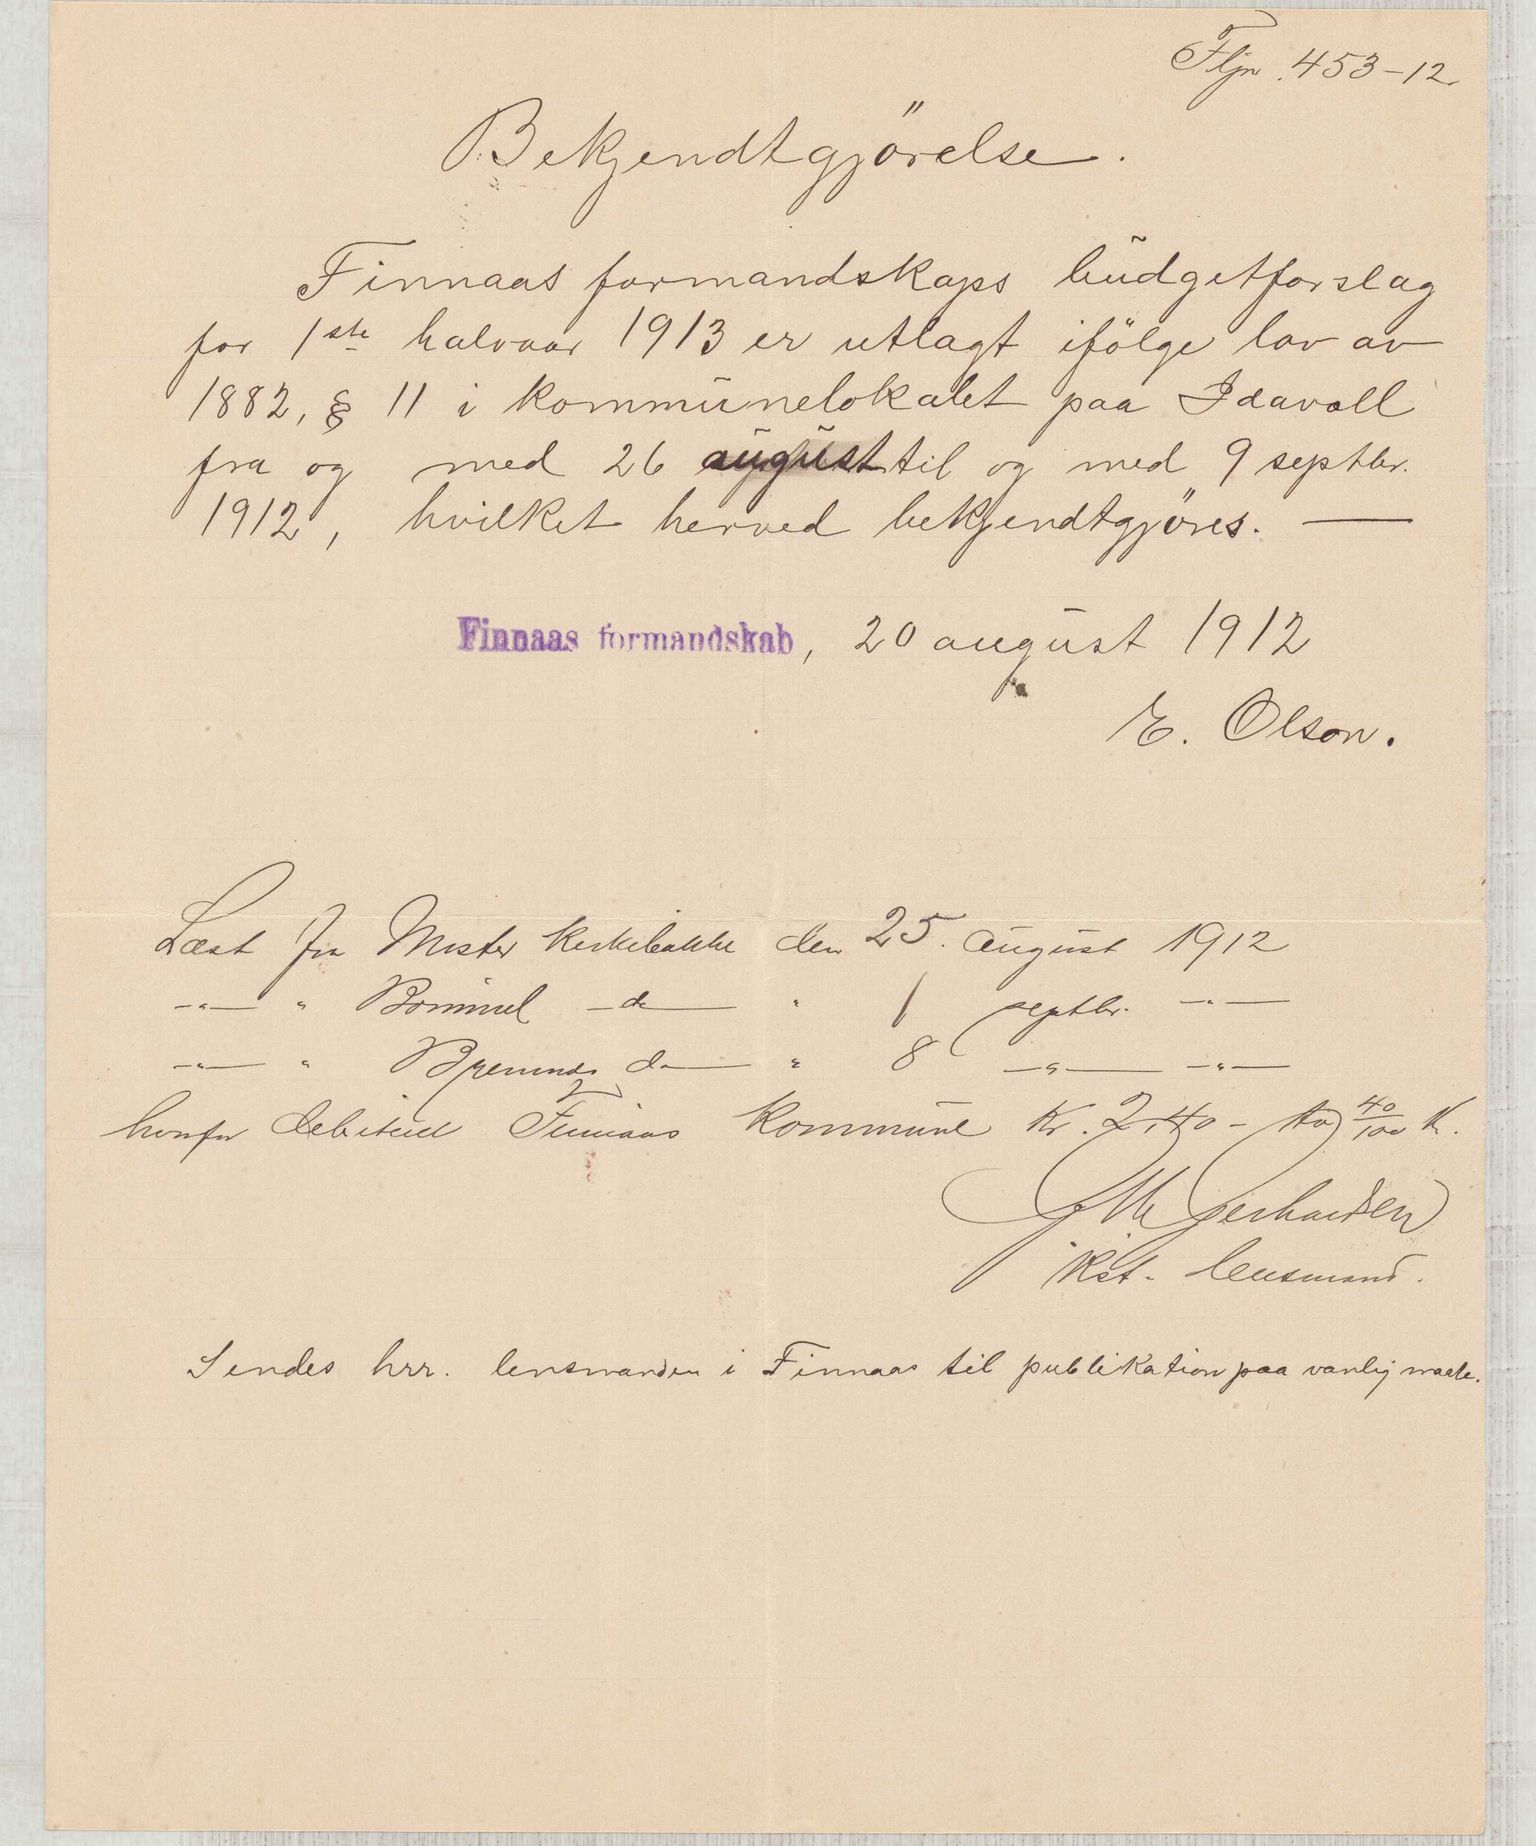 Fljn. 453-12.
Bekjendtgjörelse.
Finnaas formandskaps budgetforslag
for 1ste halvaar 1913 er utlagt ifölge lov av
1882, § 11 i kommunelokalet paa Idavoll
fra og med 26 august til og med 9 septbr.
1912, hvilket herved bekjendtgjöres. —
Finnaas formandskab, 20 august 1912
E. Olson.
Læst fra Moster kirkebakke den 25. august 1912
—"— " Bömmel — do — " 1 septbr. —"—
—"— " Bremnes do — " 8 —"— —"—
hvorfor debiteret Finnaas Kommune Kr. 2,40 - to 40/100 Kr.
Gerhardsen
Kst. lensmand.
Sendes hrr. lensmanden i Finnaas til publikation paa vanlig maate.